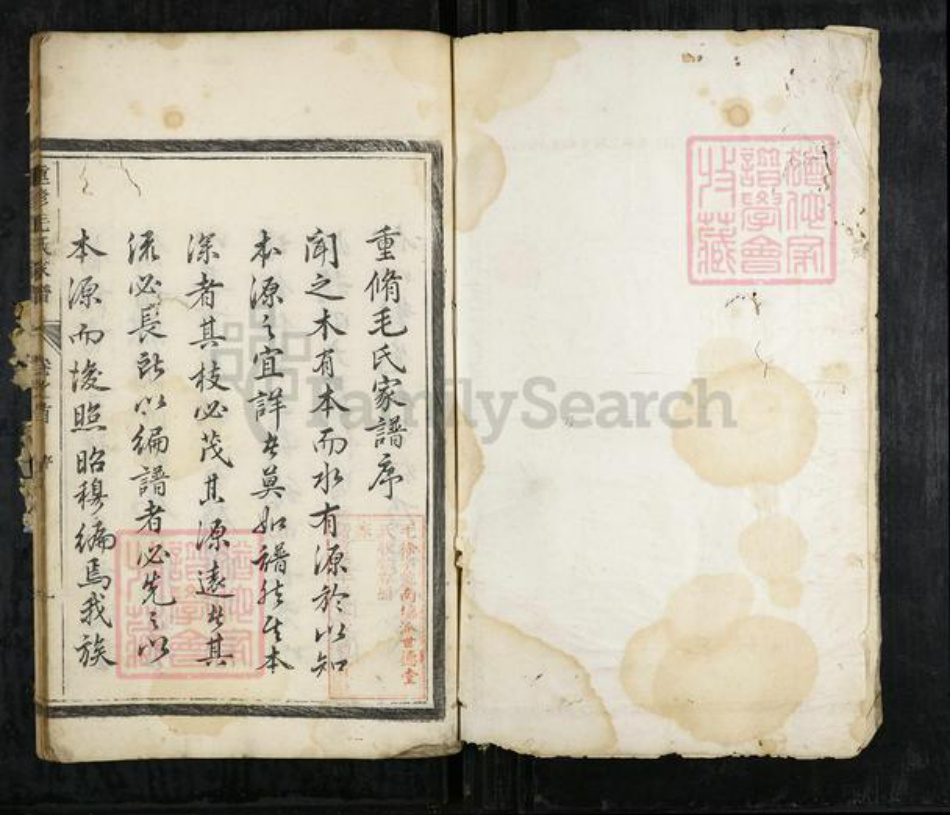 重脩毛氏家譜序
聞之木有本而水有源於以知
本源之宜詳者莫如譜然其本
深者其枝必茂其源遠者其
流必長所以編譜者必先之以
本源而後照昭穆編焉我族
重修毛氏家譜 卷之首 序
FamilySearch
譜學會
收藏